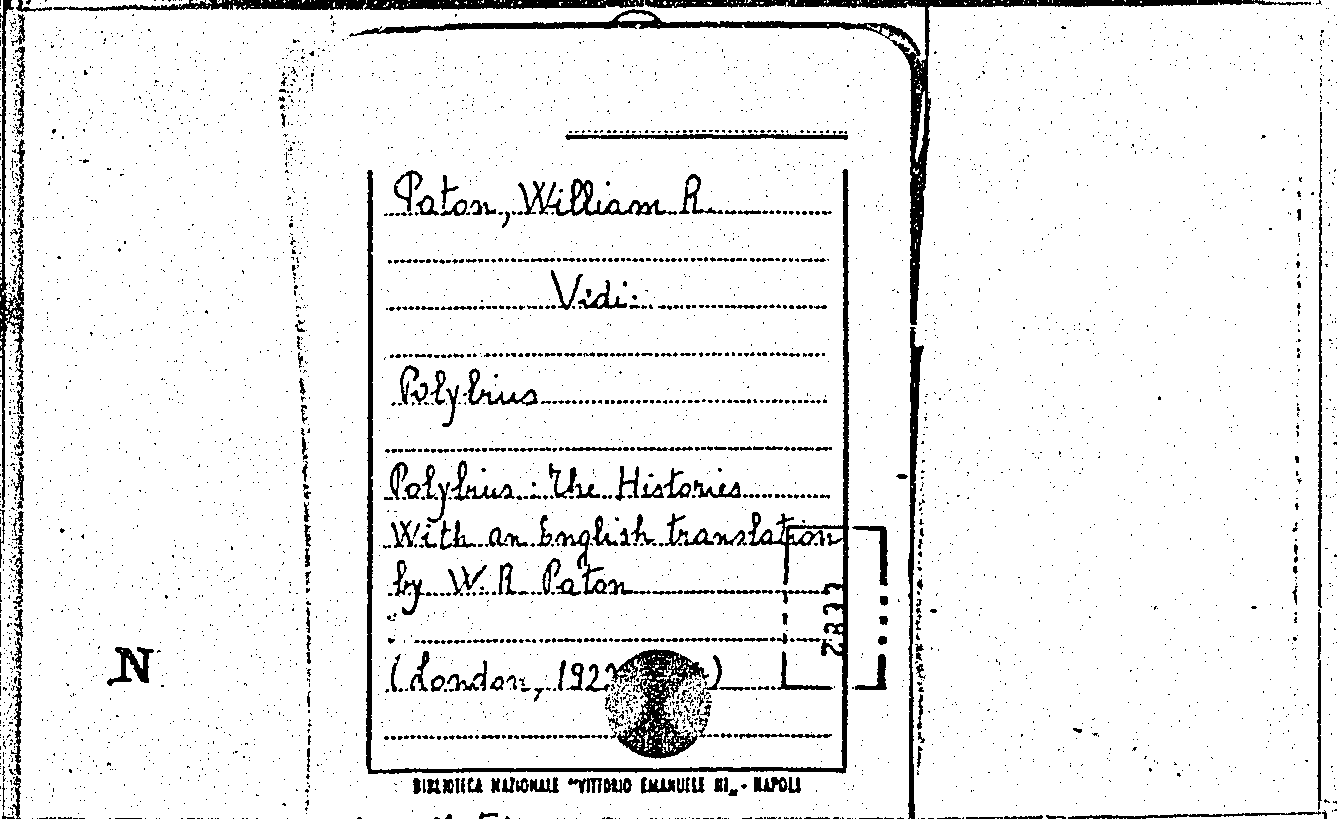 Paton, William R.
Vidi:
Polybius
Polybius: The Histories
With an English translation
by W. R. Paton
(London, 192
)
2833
N
BIBLIOTECA NAZIONALE "VITTORIO EMANUELE III„ - NAPOLI